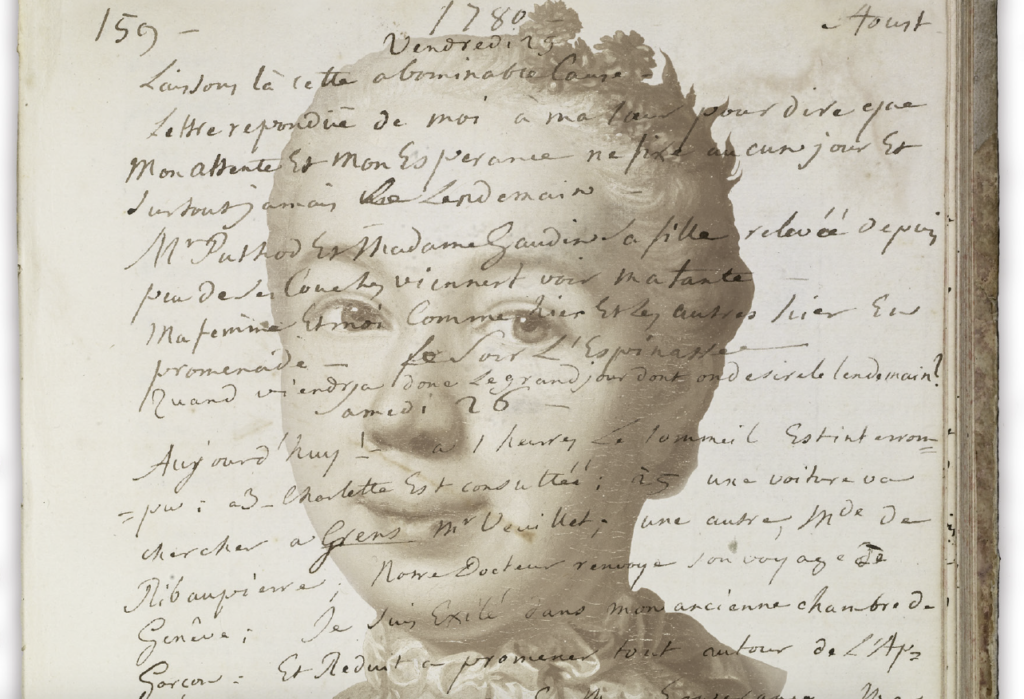 159 - 1780 - Aoust
Vendredi 25
Laissons là cette abominable Cause
Lettre repondüe de moi à ma pour dire que
Mon attente Et Mon Esperance ne fixe aucun jour Et
Surtout jamais Le Lendemain -
Mr Puthod Et Madame Gaudin Sa fille relevéé depuis
peu de Ses Couches viennent voir ma tante
Ma femme Et moi Comme hier Et les autres hier En
promenade - Le Soir L'Espinasse
Quand viendra donc Le grand jour dont on desire le lendemain?
Samedi 26 -
Aujourd'huy ! à 1 heures Le Sommeil Est interrom=
=pu : a 3 - Charlotte Est consultéé ; à 5 une voiture va
chercher a Grens Mr Veuillet ; une autre, Mde de
Ribaupierre ; Notre Docteur renvoye son voyage de
Genêve ; Je Suis Exilé dans mon ancienne chambre de
Garcon : Et Reduit a promener tout autour de L'Ap=